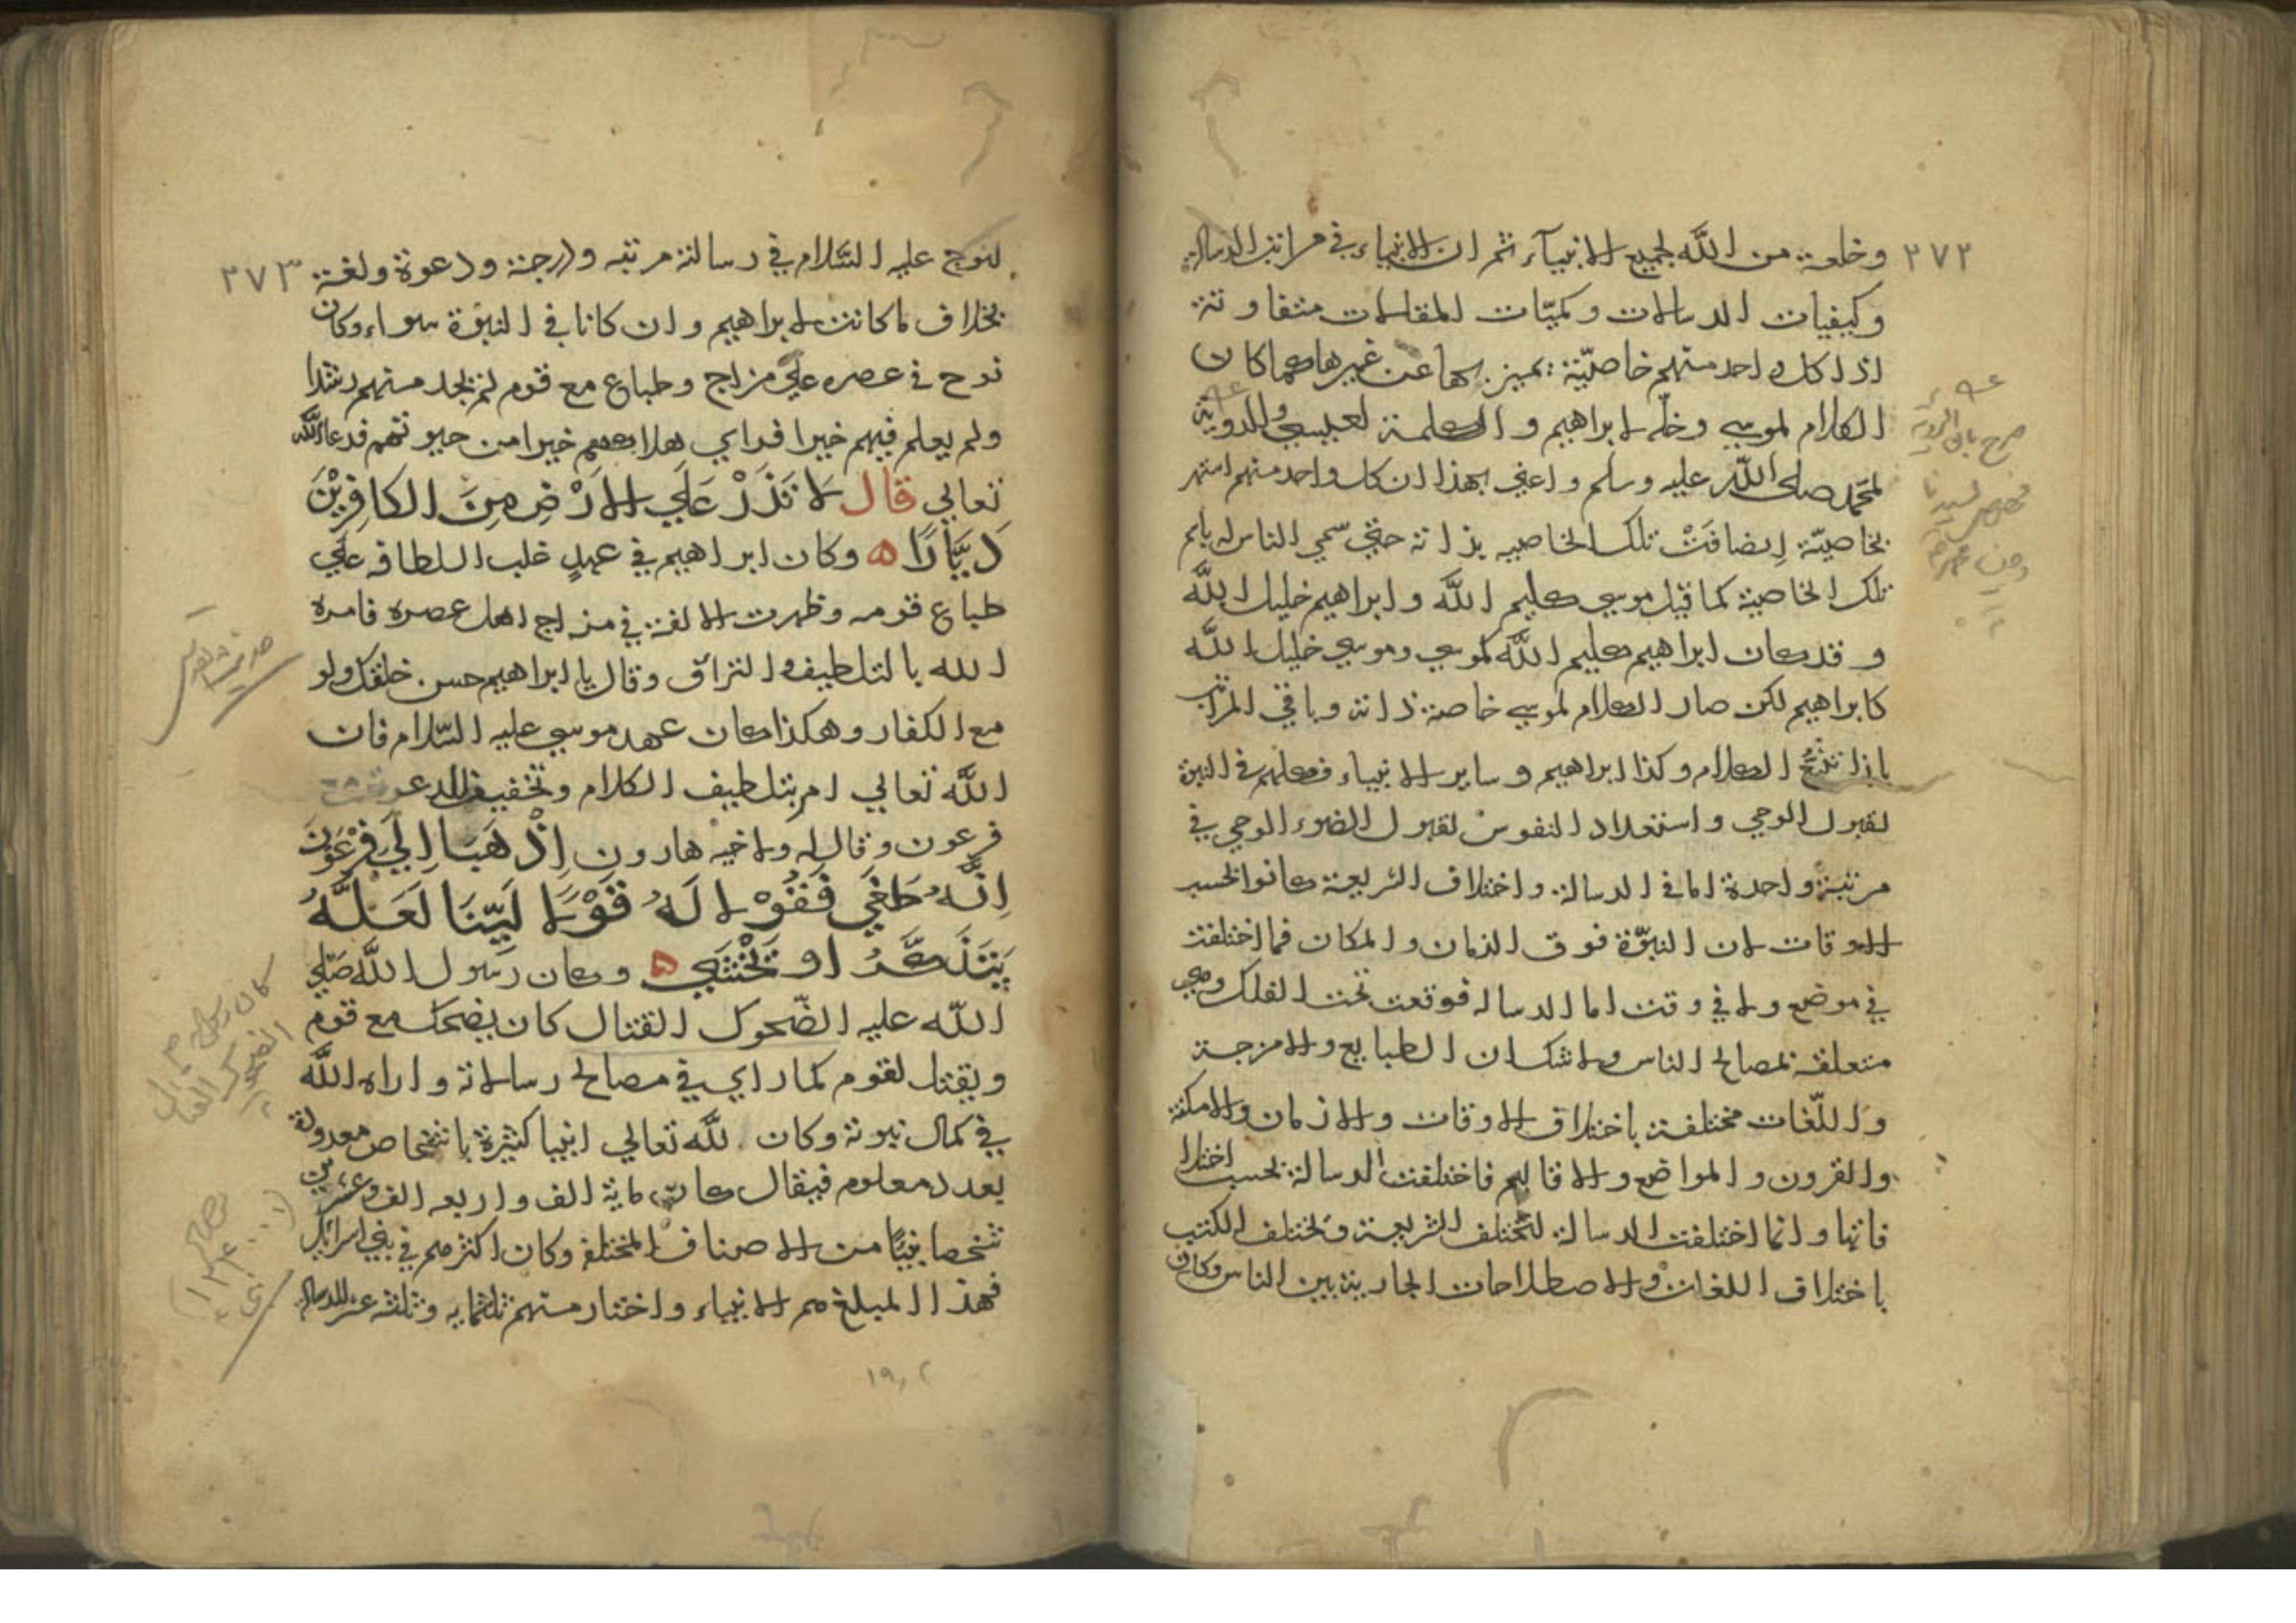 ٢٧٢
وخلعة من الله لجميع الانبيآء ثم ان الانبياء في مراتب الرسالة
وكيفيات الرسالات وكميّات المقامات متفاوتة
اذا كل واحد منهم خاصيّة يميز بها عن غيرها كما كان
الكلام لموسي وخلّه لابراهيم والكلمة لعيسي والروية
لمحمّد صلي الله عليه وسلم واعني بهذا ان كل واحد منهم اشتهر
بخاصيّة اِنضافَتْ تلك الخاصيه بذاته حتي سمي الناس له باسم
تلك الخاصية كما قيل موسي كليم الله وابراهيم خليل الله
وقد كان ابراهيم كليم الله كموسي وموسي خليل الله
كابراهيم لكن صار الكلام لموسي خاصة ذاته وباقي المراتب
الكلام وكذا ابراهيم وساير الانبياء فكلهم في النبوة
لقبول الوحي واستعداد النفوس لقبول الضوء الوحي في
مرتبة واحدة اما في الرسالة واختلاف الشريعة كانوا بحسب
الاوقات لان النبوّة فوق الزمان والمكان فما اختلفت
في موضع ولا في وقت اما الرسالة فوقعت تحت الفلك وهي
متعلقة بمصالح الناس ولا شك ان الطبايع والامزجة
واللّغات مختلفة باختلاف الاوقات والازمان والامكنة
والقرون والمواضع والاقاليم فاختلفت الرسالة بحسب اختلا
فاتها وانما اختلفت الرسالة لتختلف الشريعة وتختلف الكتب
باختلاف اللغات والاصطلاحات الجارية بين الناس وكان
صرح بان الروية
لسيدنا
٢٧٣
لنوح عليه السّلام في رسالته مرتبه ودرجة ودعوة ولغة
بخلاف ما كانت لابراهيم وان كانا في النبوّة سواء وكان
نوح في عصره علي مزاج وطباع مع قوم لم يجد منهم رشدا
ولم يعلم فيهم خيرا فراي هلاكهم خيرا من حيوتهم فدعا الله
تعالي قال لَا تَذَرْ عَلَي الاَرْضِ مِنَ الكافِرِيْنَ
دَيَّارًا ه وكان ابراهيم في عهدٍ غلب اللطافه علي
طباع قومه وظهرت الالفة في مزاج اهل عصره فامره
الله بالتلطيف والنزاق وقال يا ابراهيم حسن خلقك ولو
مع الكفار وهكذا كان عهد موسي عليه السّلام فان
الله تعالي امر بتلطيف الكلام وتخفيف الدعوة
فرعون وقال له ولاخيه هارون اِذْهَبَا اِلَي فِرْعَوْنَ
اِنَّهُ طَغَي فَقُوْلَا لَهُ قَوْلًا لَيِّنًا لَعَلَّهُ
يَتَذَكَّرُ او يَخْشَي ه وكان رسول الله صَلي
الله عليه الضّحوك القتال كان يضحك مع قوم
ويقتل لقوم كما راي في مصالح رسالاته واراه الله
في كمال نبوته وكان لله تعالي انبيا كثيرة باشخاص معدودة
بعدد معلوم فيقال كان ماية الف واربعه الف وعشرين
شخصا نبيّا من الاصناف المختلفة وكان اكثرهم في بني اسرائل
فهذا المبلغ هم الانبياء واختار منهم ثلثمايه وثلثه عشر للرسالة
كان رسول
الضحوك القتال
١٩٠٢